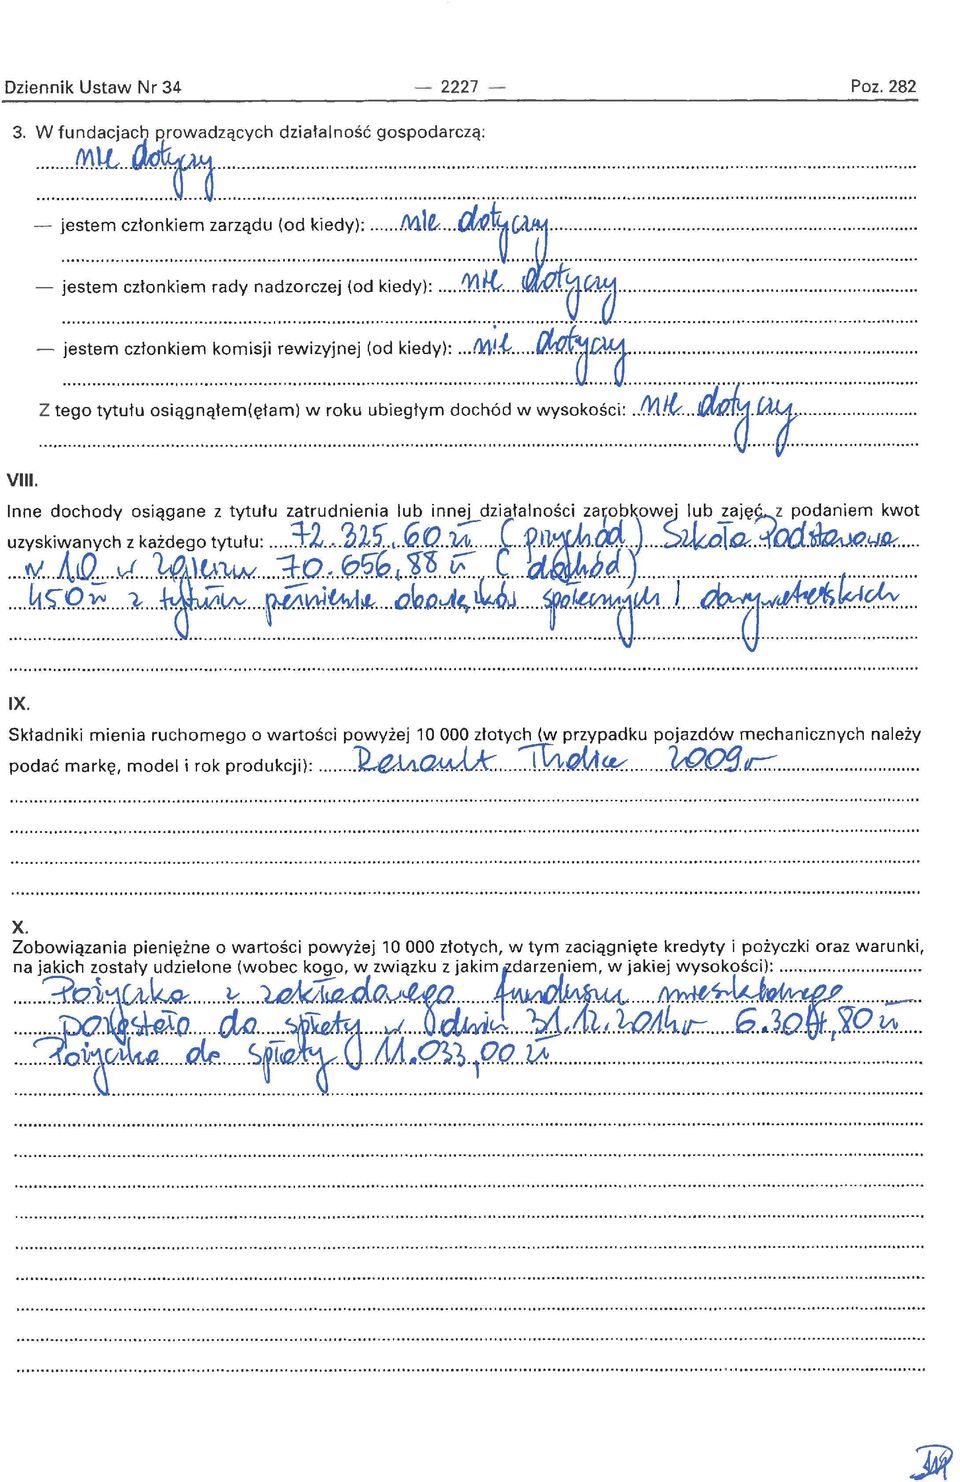 Dziennik Ustaw Nr 34 — 2227 — Poz. 282
3. W fundacjach prowadzących działalność gospodarczą:
nie dotyczy
— jestem członkiem zarządu (od kiedy): nie dotyczy
— jestem członkiem rady nadzorczej (od kiedy): nie dotyczy
— jestem członkiem komisji rewizyjnej (od kiedy): nie dotyczy
Z tego tytułu osiągnąłem(ęłam) w roku ubiegłym dochód w wysokości: nie dotyczy
VIII.
Inne dochody osiągane z tytułu zatrudnienia lub innej działalności zarobkowej lub zajęć, z podaniem kwot
uzyskiwanych z każdego tytułu: 72.325,60 zł (przychód) Szkoła Podstawowa
nr 10 w Zgierzu 70.656,88 zł (dochód)
450 zł z tytułu pełnienia obowiązków społecznych i obywatelskich
IX.
Składniki mienia ruchomego o wartości powyżej 10 000 złotych (w przypadku pojazdów mechanicznych należy
podać markę, model i rok produkcji): Renault Thalia 2009 r
X.
Zobowiązania pieniężne o wartości powyżej 10 000 złotych, w tym zaciągnięte kredyty i pożyczki oraz warunki,
na jakich zostały udzielone (wobec kogo, w związku z jakim zdarzeniem, w jakiej wysokości):
Pożyczka z zakładowego funduszu mieszkalnego
pozostało do spłaty w dniu 31.12.2014 r 6.304,80 zł
Pożyczka do spłaty 11.033,00 zł